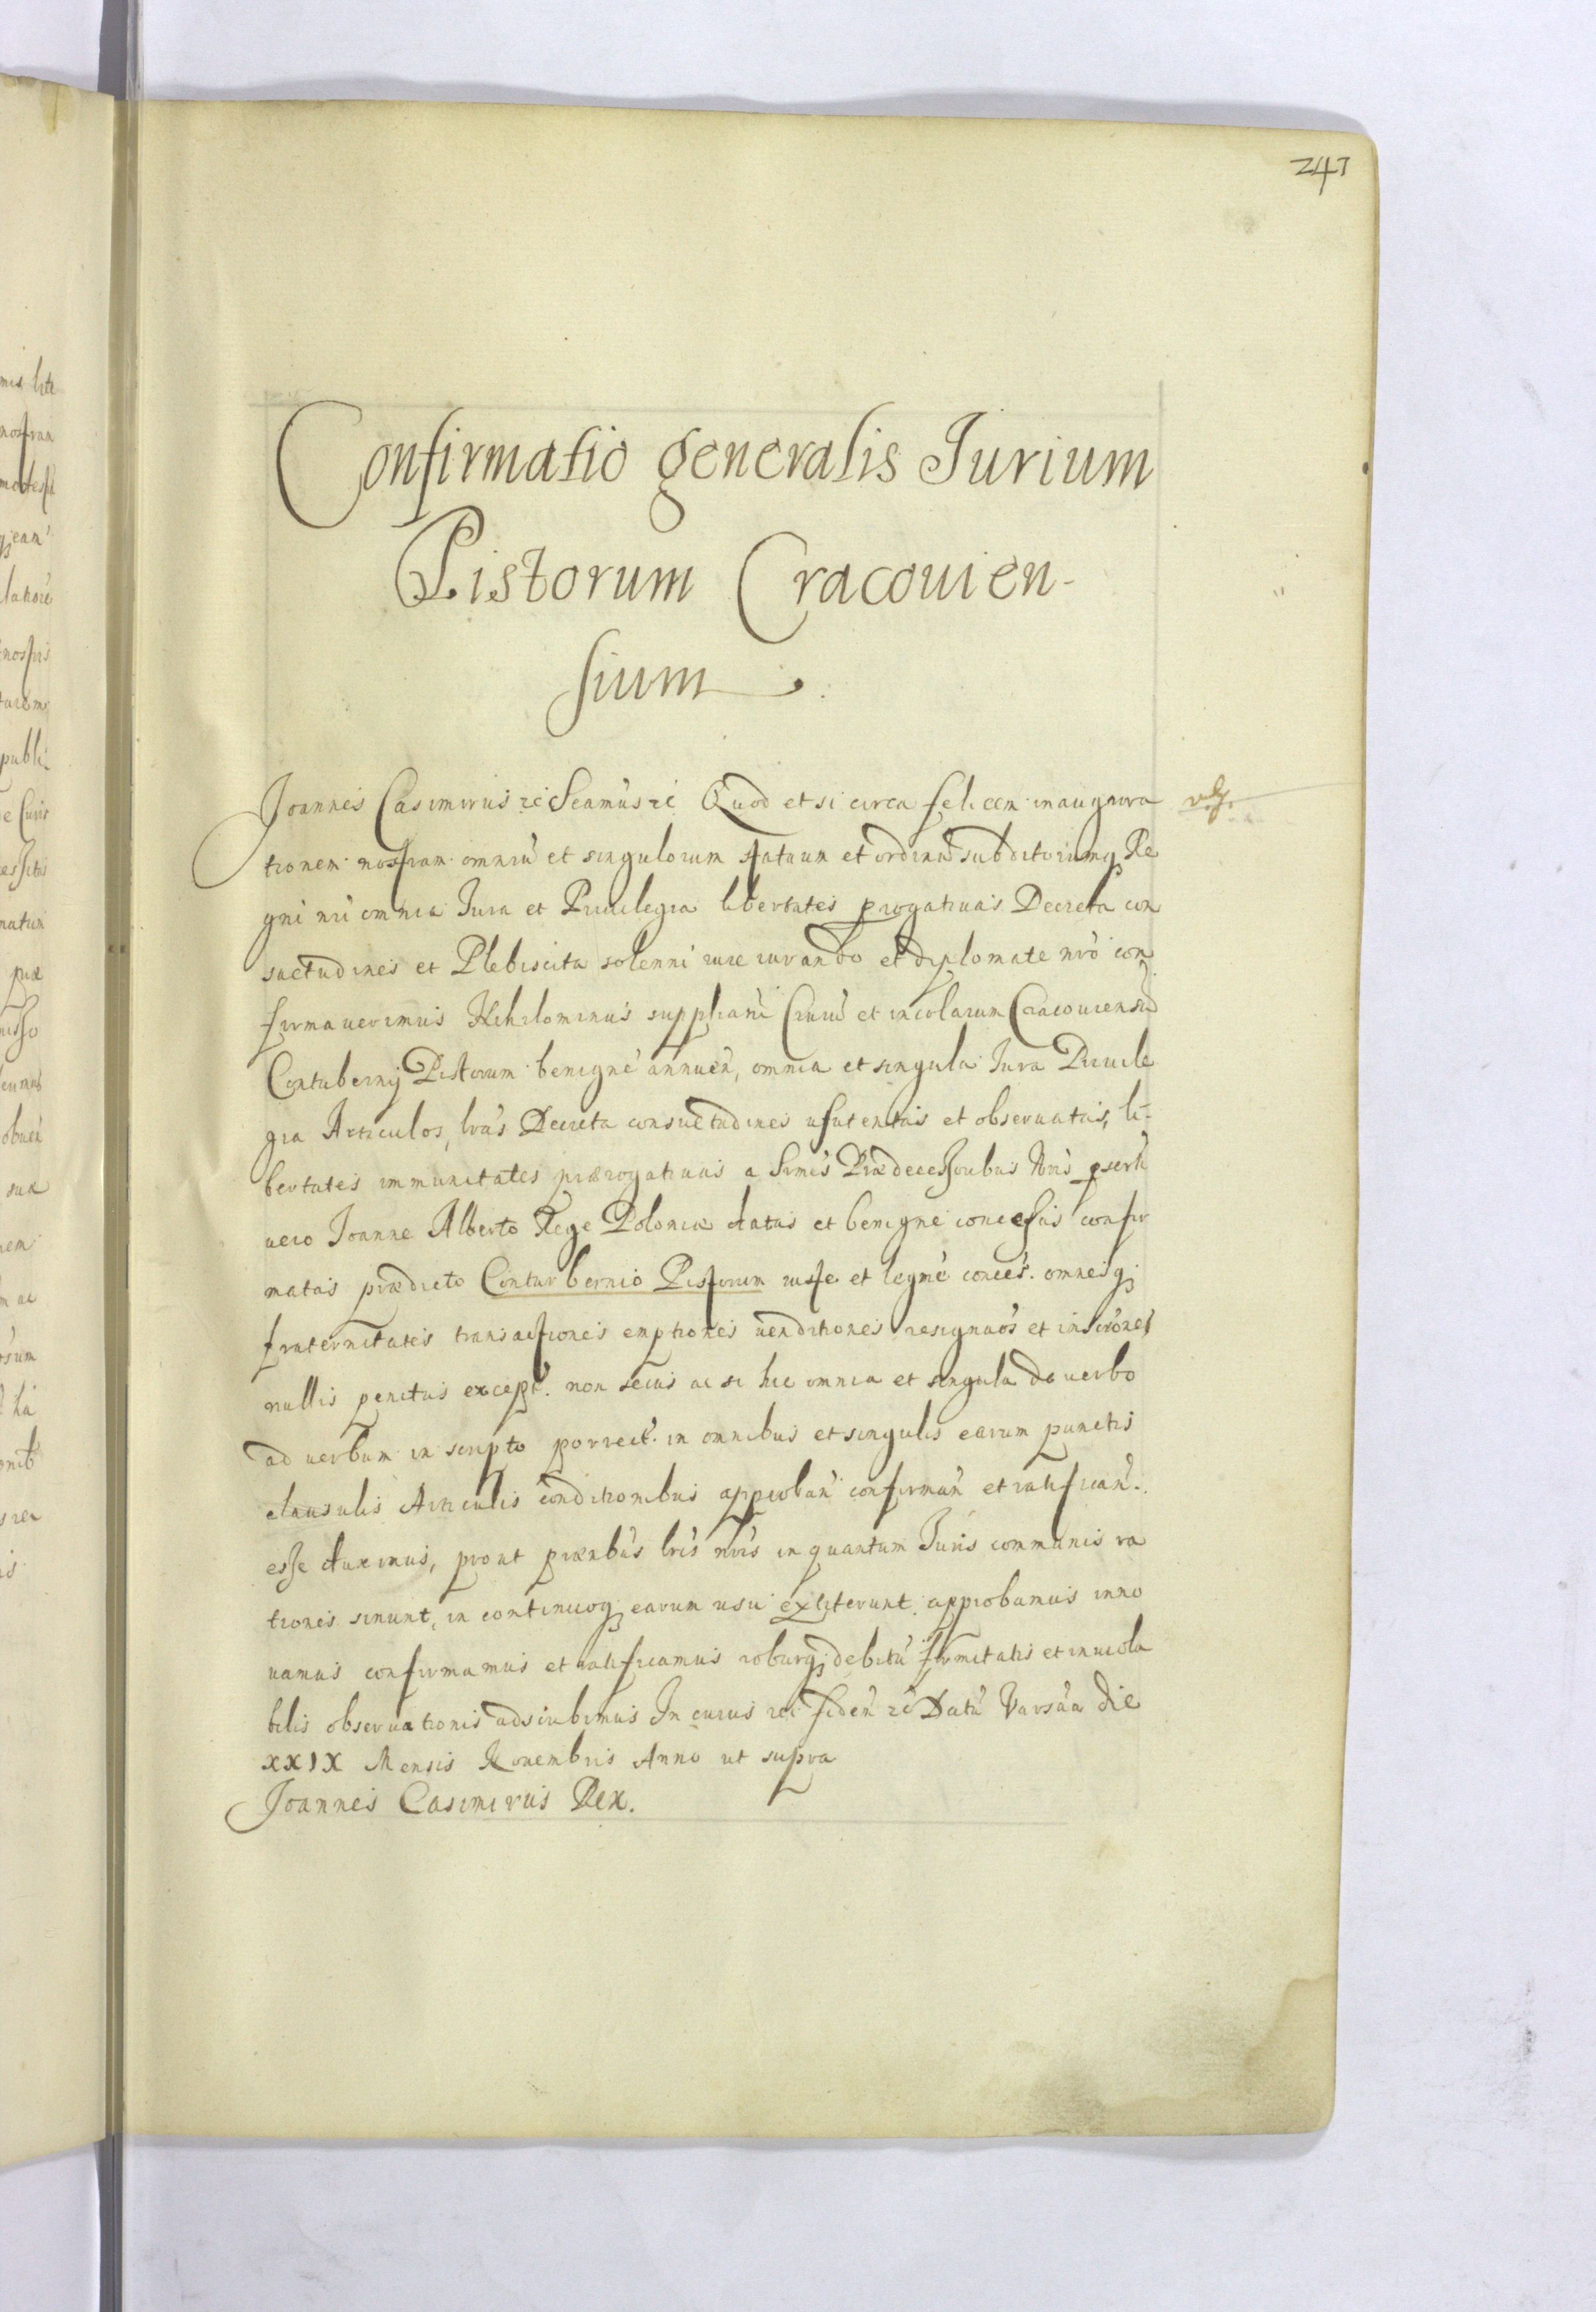 247
Confirmatio generalis Jurium
Pistorum Cracouien-
sium
Joannes Casimirus etc Seamus etc Quod et si circa felicem inaugura
tionem nostram omniu et singulorum statuum et ordinu subditorumq Re
gni nri omnia Iura et Priuilegia libertates progatiuas Decreta con
suetudines et Plebiscita solenni iure iurando et diplomate nro con
firmauerimus Nihilominus supplicani Ciuiu et incolarum Cracouiensiu
Contubernij Pistorum benigne annuen, omnia et singula Iura Priuile
gia Articulos, lras Decreta consuetudines usutentas et obseruatas, li-
bertates immunitates prærogatiuas a Srmis Prædecessoribus Nris pserti
uero Joanne Alberto Rege Poloniæ datas et benigne concessas confir
matas prædicto Conturbernio Pistorum iuste et legme conces. omnesq
fraternitates transactiones emptiones uenditiones resignaos et inscrones
nullis penitus except. non secus ac si hic omnia et singula de uerbo
ad uerbum in scripto porrect. in omnibus et singulis earum punctis
clausulis Articulis conditionibus approban confirman et ratifican.
esse duximus, prout prænbus lris nris in quantum Juris communis ra
tiones sinunt, in continuoq earum usu extiterunt approbamus inno
uamus confirmamus et ratificamus roburq debitu firmitatis et inuiola
bilis obseruationis adscribimus In cuius rei fiden etc Datu Varsa die
XXIX Mensis Nouembris Anno ut supra
Joannes Casimirus Rex.